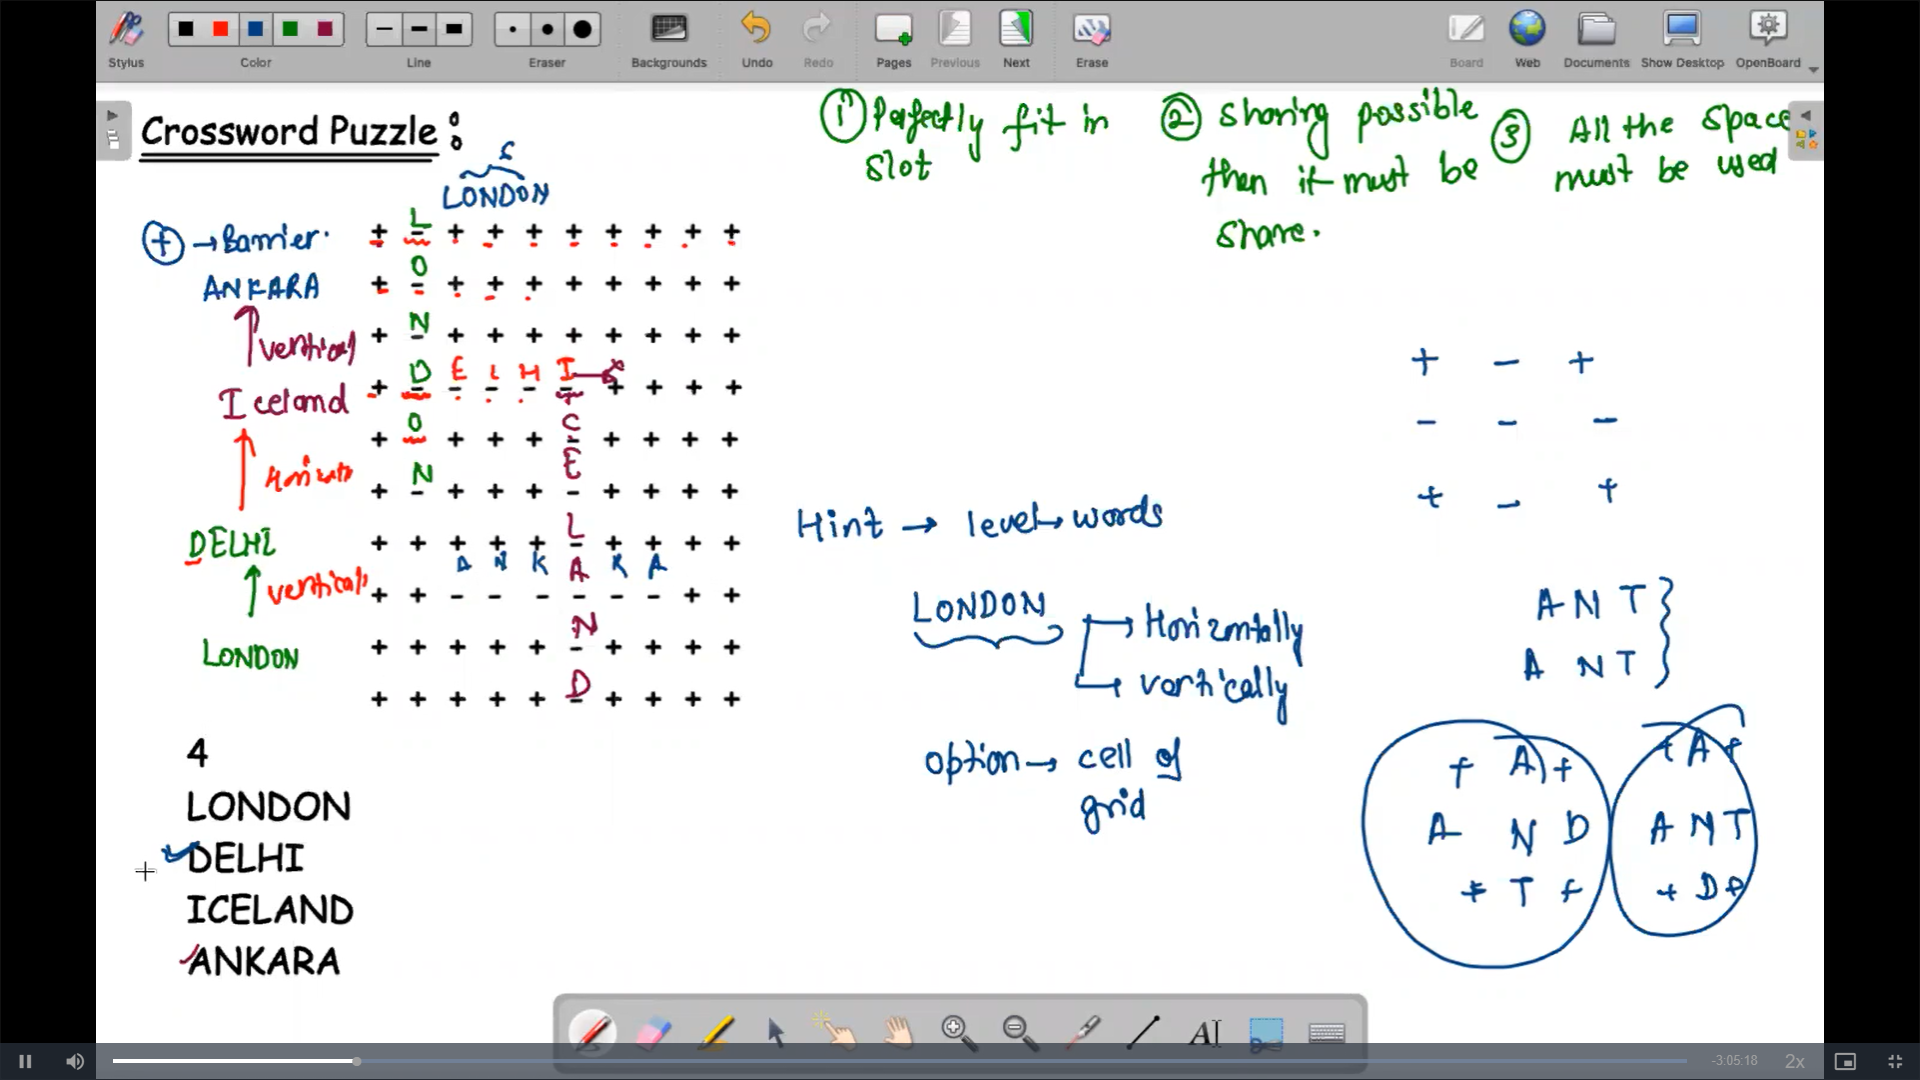 Stylus Color Line Eraser Backgrounds Undo Redo Pages Previous Next Erase Board Web Documents Show Desktop OpenBoard
Crossword Puzzle :
① Perfectly fit in
slot
② Sharing possible
then it must be
share.
③ All the space
must be used
LONDON
+ → Barrier.
ANKARA
vertical
Iceland
DELHI
vertical
LONDON
+ L + + + + + + + +
+ O + + + + + + + +
+ N + + + + + + + +
+ D E L H I + + + +
+ O + + + C + + + +
+ N + + + E + + + +
+ + + + + L + + + +
+ + A N K A R A + +
+ + + + + N + + + +
+ + + + + D + + + +
4
LONDON
DELHI
ICELAND
ANKARA
Hint → level → words
LONDON
→ Horizontally
→ vertically
option → cell of
grid
+ - +
- - -
+ - +
A N T
A N T
+ A +
A N D
+ T +
+ A +
A N T
+ D +
-3:05:18 2x